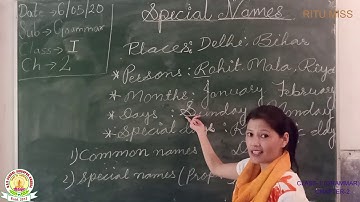 Date → 6/05/20
Sub → Grammar
Class → I
Ch → 2
Special Names
Places: Delhi, Bihar
* Persons: Rohit, Mala, Riya
* Months: January February
* Days: Sunday Monday
* Special days: c day
1) Common names
2) Special names (Prop
RITU MISS
CLASS GRAMMAR